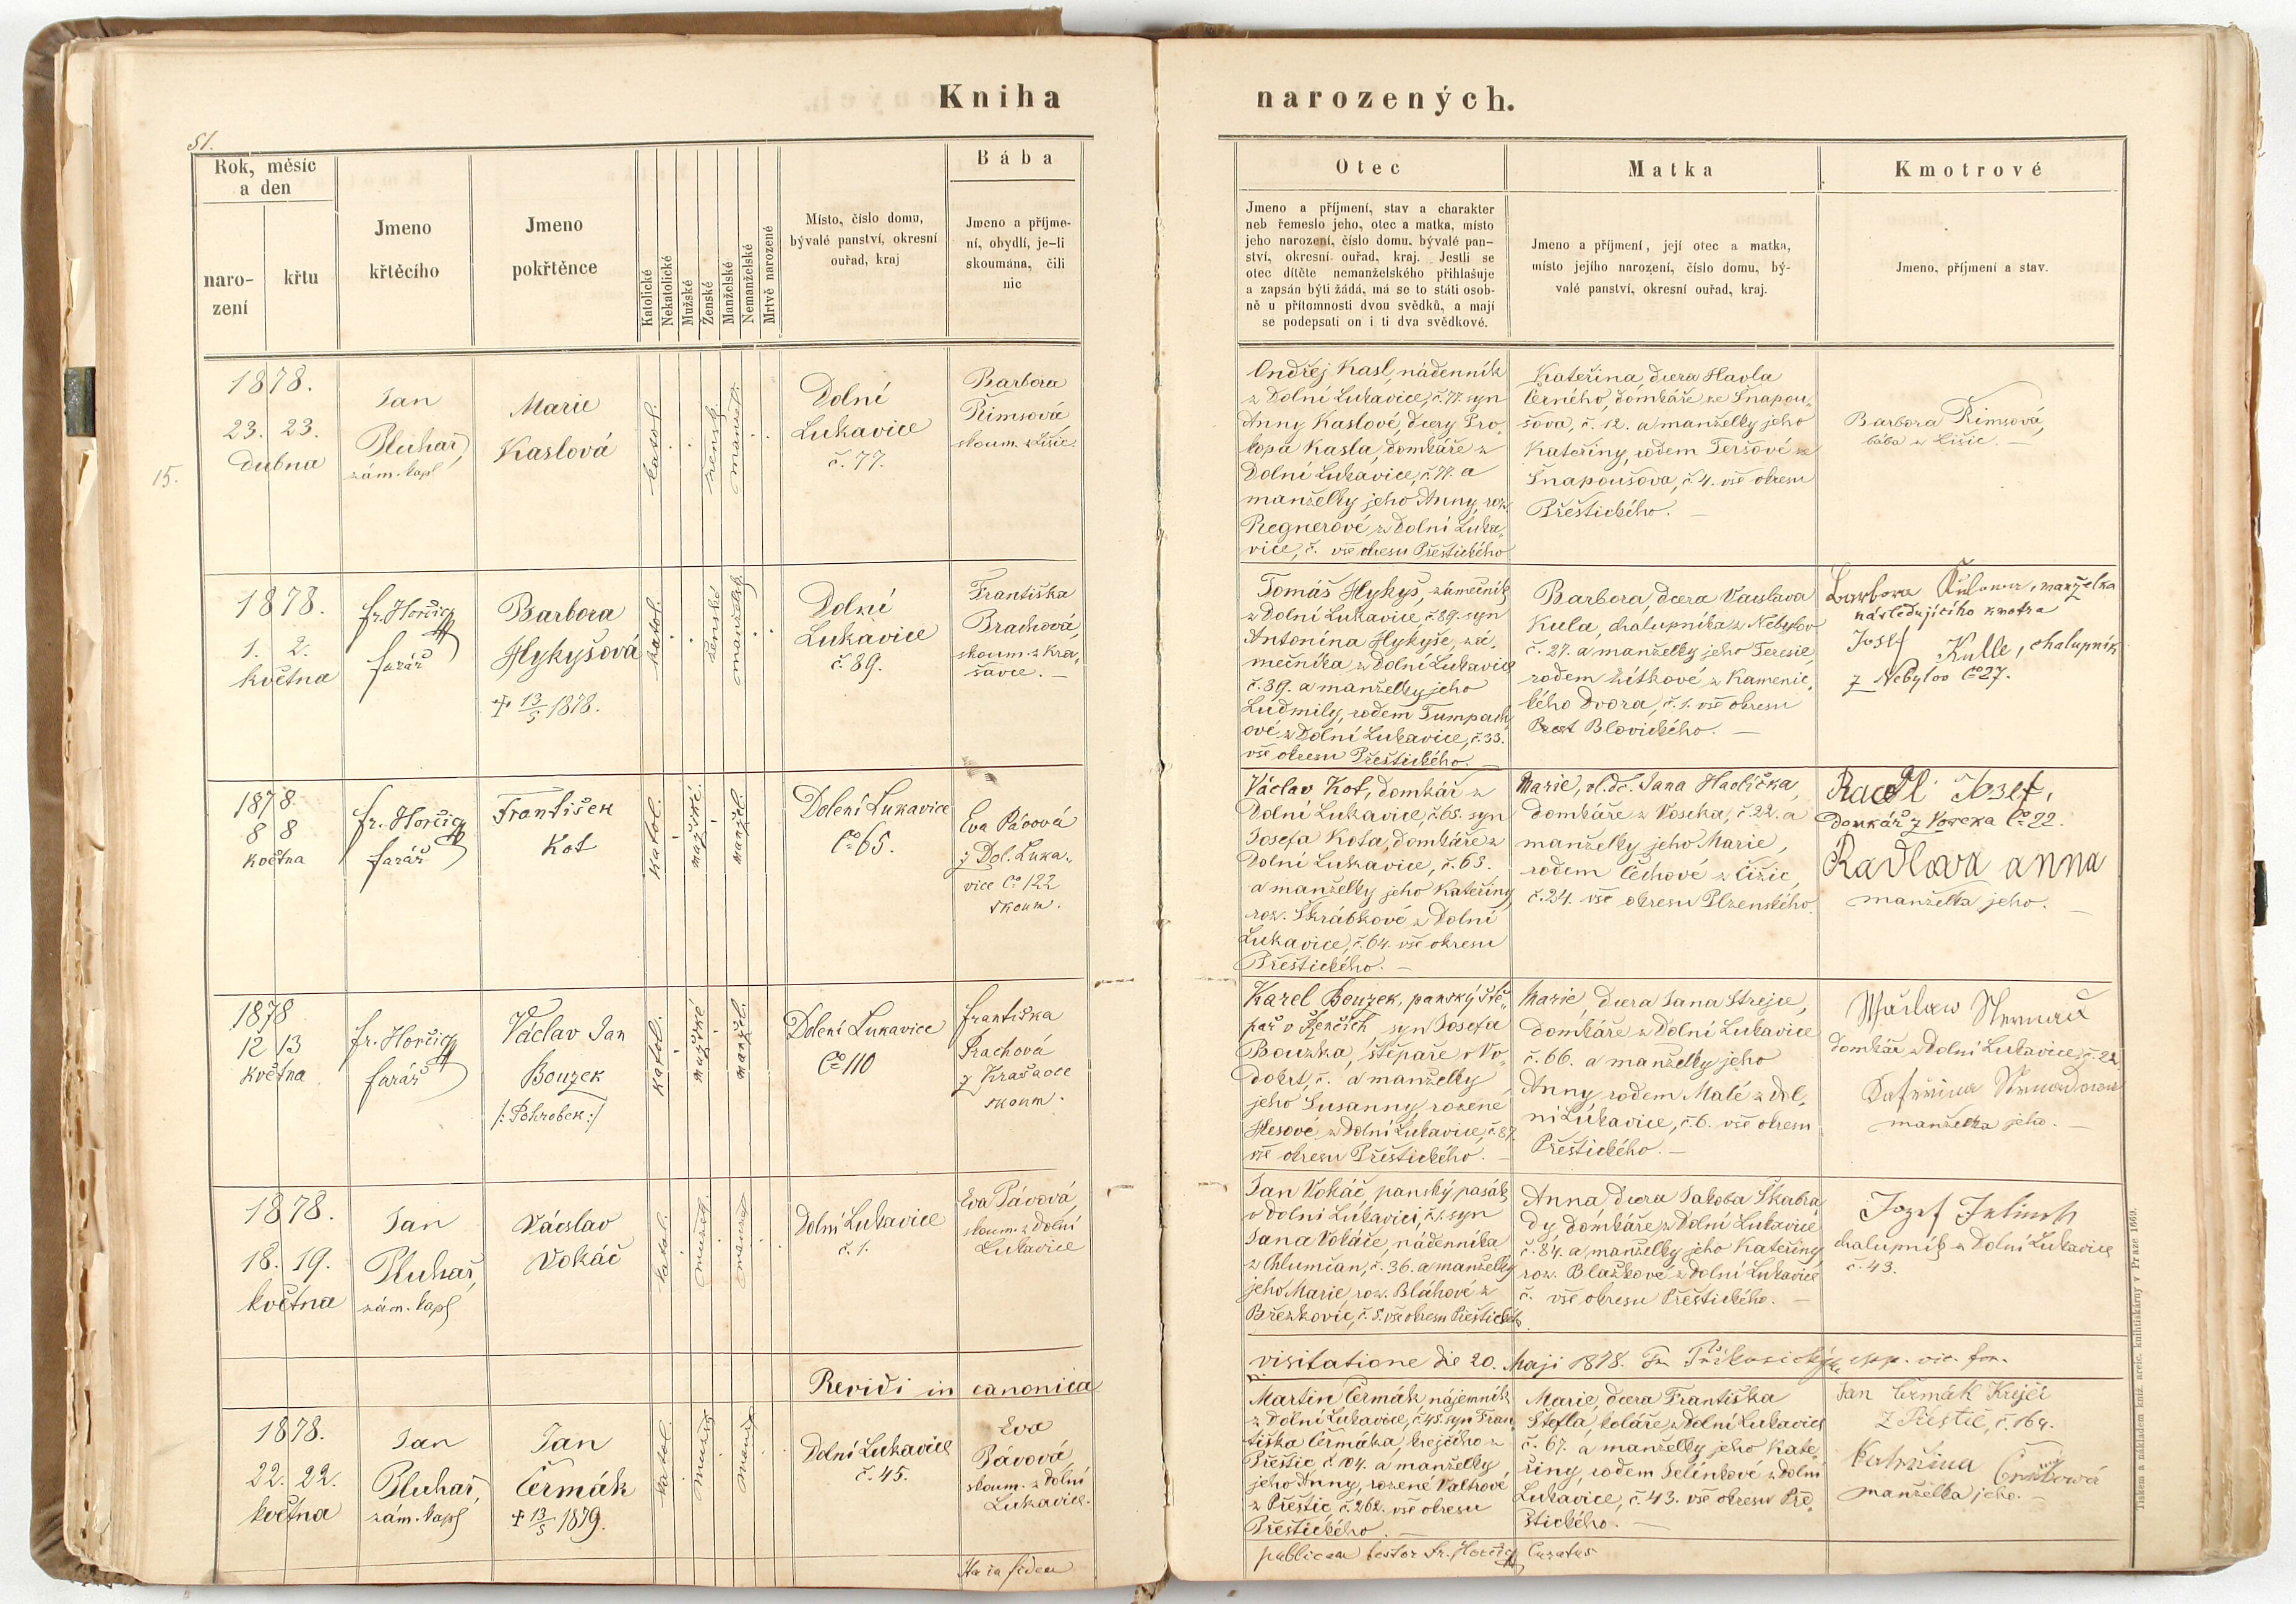 Kniha narozených.
51.
Rok, měsíc
a den
naro-
zení
křtu
Jmeno
křtěcího
Jmeno
pokřtěnce
Katolické
Nekatolické
Mužské
Ženské
Manželské
Nemanželské
Mrtvě narozené
Místo, číslo domu,
bývalé panství, okresní
ouřad, kraj
Bába
Jmeno a příjme-
ní, obydlí, je-li
skoumána, čili
nic
Otec
Jmeno a příjmení, stav a charakter
neb řemeslo jeho, otec a matka, místo
jeho narození, číslo domu, bývalé pan-
ství, okresní ouřad, kraj. Jestli se
otec dítěte nemanželského přihlašuje
a zapsán býti žádá, má se to státi osob-
ně u přítomnosti dvou svědků, a mají
se podepsati on i ti dva svědkové.
Matka
Jmeno a příjmení, její otec a matka,
místo jejího narození, číslo domu, bý-
valé panství, okresní ouřad, kraj.
Kmotrové
Jmeno, příjmení a stav.
15.
1878.
23. 23.
dubna
Jan
Pluhař,
zám. kapl
Marie
Kaslová
katol.
žensk.
manžel.
Dolní
Lukavice
č. 77.
Barbora
Řimsová
skoum. z Lišic.
Ondřej Kasl, nádenník
z Dolní Lukavice, č. 77. syn
Anny Kaslové, dcery Pro-
kopa Kasla, domkáře z
Dolní Lukavice, č. 77. a
manželky jeho Anny, roz.
Regnerové z Dolní Luka-
vice, č. vše okresu Přeštického
Kateřina, dcera Havla
Černého, domkáře ze Šnapou-
šova, č. 12. a manželky jeho
Kateřiny, rodem Teršové ze
Šnapoušova, č. 4. vše okresu
Přeštického. —
Barbora Řimsová,
bába z Lišic. —
1878.
1. 2.
května
fr. Horčic
farář
Barbora
Hykyšová
+ 13/5 1878.
katol.
ženské
manželsk.
Dolní
Lukavice
č. 89.
Františka
Brachová,
skoum. z Kra-
šavce. —
Tomáš Hykyš, zámečník
z Dolní Lukavice, č. 89. syn
Antonína Hykyše, zá-
mečníka z Dolní Lukavice
č. 39. a manželky jeho
Ludmily, rodem Tumpach-
ové z Dolní Lukavice, č. 33.
vše okresu Přeštického. —
Barbora, dcera Václava
Kula, chalupníka z Nebylov
č. 27. a manželky jeho Teresie,
rodem Žítkové z Kamenic-
kého Dvora, č. 1. vše okresu
Blovického. —
Barbora manželka
následujícího kmotra
Josef Kulle, chalupník
z Nebylov Čo 27.
1878
8 8
května
fr. Horčic
farář
František
Kot
katol.
mužské.
manžel.
Dolení Lukavice
Čo 65.
Eva Pávová
z Dol. Luka-
vice Čo 122
skoum.
Václav Kot, domkář z
Dolní Lukavice, č. 65. syn
Josefa Kota, domkáře z
Dolní Lukavice, č. 63.
a manželky jeho Kateřiny
roz. Škrábkové z Dolní
Lukavice, č. 64. vše okresu
Přeštického. —
Marie, vl. dc. Jana Havlíčka,
domkáře z Voseka, č. 22. a
manželky jeho Marie,
rodem Čechové z Čižic,
č. 24. vše okresu Plzenského.
Radl Josef,
domkář z Voseka Čo 22.
Radlova anna
manželka jeho. —
1878
12 13
května
fr. Horčic
farář
Václav Jan
Bouzek
/: Pohrobek :/
katol.
mužské
manžel.
Dolení Lukavice
Čo 110
františka
Prachová
z Krašovce
skoum.
Karel Bouzek, panský ště-
pař v Řenčích syn Josefa
Bouzka, štěpaře v Vo-
dokrt, č. a manželky
jeho Susanny, rozené
Hesové z Dolní Lukavice, č. 87.
vše okresu Přeštického. —
Marie, dcera Jana Strejce,
domkáře z Dolní Lukavice
č. 66. a manželky jeho
Anny, rodem Malé z Dol-
ní Lukavice, č. 6. vše okresu
Přeštického. —
Wáclaw
domkář z Dolní Lukavice, č. 22
manželka jeho. —
1878.
18. 19.
května
Jan
Pluhař,
zám. kapl
Václav
Vokáč
katol.
mužsk.
manžel
Dolní Lukavice
č. 1.
Eva Pávová,
skoum. z Dolní
Lukavice
Jan Vokáč, panský pasák
v Dolní Lukavici, č. 1. syn
Jana Vokáče, nádenníka
z Chlumčan, č. 36. a manželky
jeho Marie roz. Bláhové z
Březkovic, č. 5. vše okresu Přeštického.
Anna, dcera Jakoba Škabra-
dy, domkáře z Dolní Lukavice
č. 84. a manželky jeho Kateřiny
roz. Blažkové z Dolní Lukavice
č. vše okresu Přeštického. —
Jozef Jelinek
chalupník z Dolní Lukavice
č. 43.
Revidi in canonica visitatione die 20. Maji 1878. epp. vic. for.
1878.
22. 22.
května
Jan
Pluhař,
zám. kapl
Jan
Čermák
+ 13/5 1879.
katol.
mužsk.
manž.
Dolní Lukavice
č. 45.
Eva
Pávová,
skoum. z Dolní
Lukavice.
Martin Čermák, nájemník
z Dolní Lukavice, č. 45. syn Fran-
tiška Čermáka, krejčího z
Přeštic č. 104. a manželky
jeho Anny, rozené Valtrové
z Přeštic, č. 262. vše okresu
Přeštického. —
Marie, dcera Františka
Štefla, koláře z Dolní Lukavice
č. 67. a manželky jeho Kate-
řiny, rodem Jelínkové z Dolní
Lukavice, č. 43. vše okresu Pře-
štického. —
Jan Čermák Krejčí
z Přeštic, č. 164.
Kateřina Čermáková
manželka jeho. —
Ita in fidem publicam testor Fr. Horčic Curatus
Tiskem a nákladem kníž. arcib. knihtiskárny v Praze 1869.